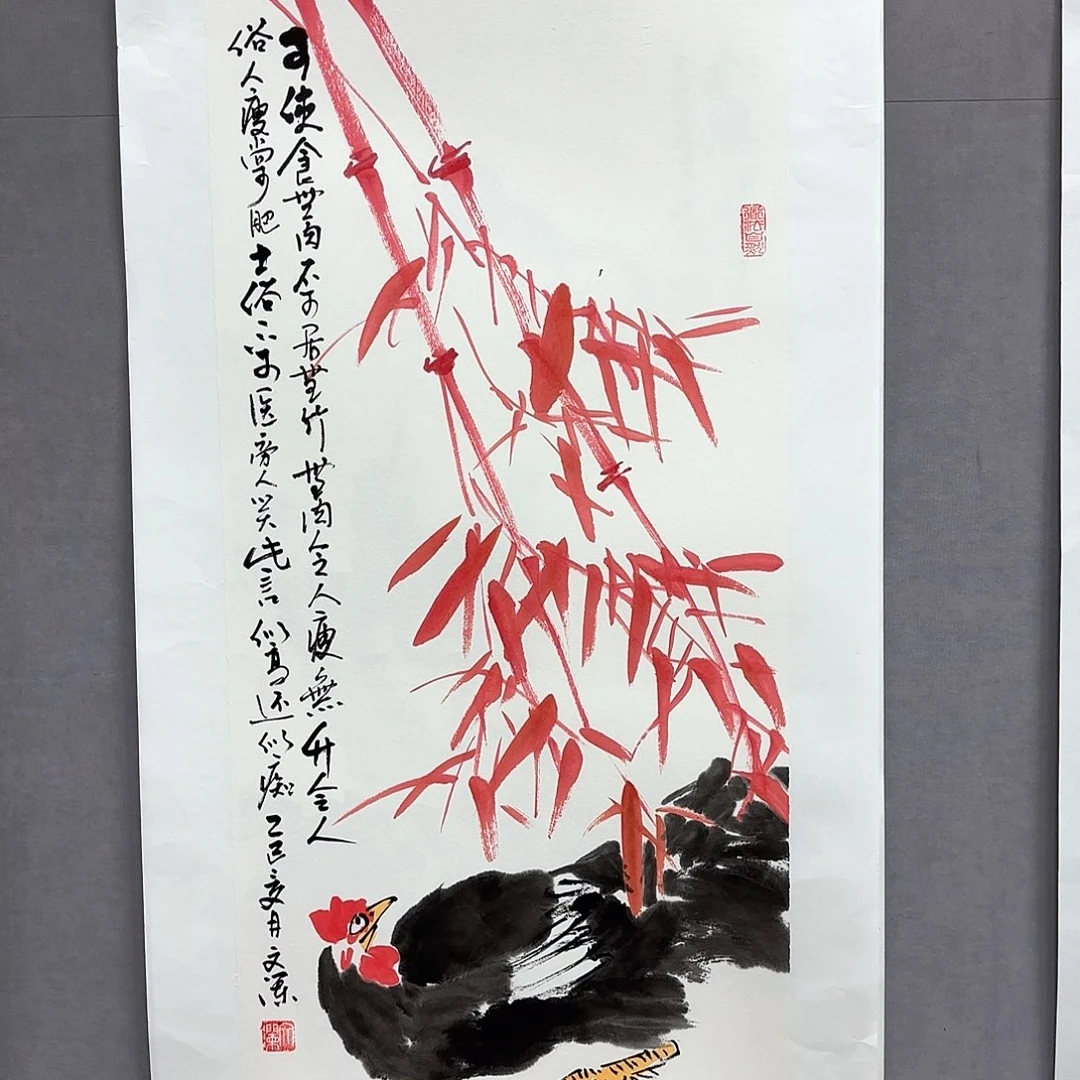 可使食無肉不可居無竹無肉令人瘦無竹令人
俗人瘦尚可肥士俗不可医旁人笑此言似高还似痴 乙巳夏月文澜